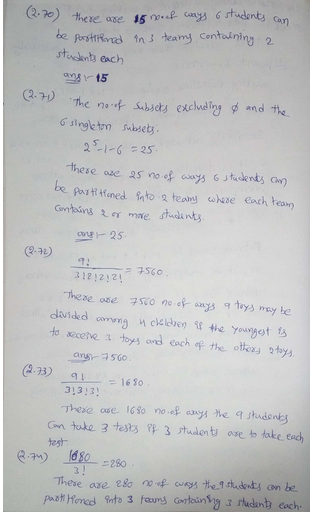 (2.70) there are 15 no.of ways 6 students can
be partitioned in 3 teams containing 2
students each
ans:- 15
(2.71) The no.of subsets excluding φ and the
6 singleton subsets.
2^5-1-6 = 25.
There are 25 no of ways 6 students can
be partitioned into 2 teams where each team
contains 2 or more students.
ans:- 25.
(2.72) 9!/3!2!2!2! = 7560.
There are 7560 no of ways 9 toys may be
divided among 4 children if the youngest is
to receive 3 toys and each of the others 2 toys
ans:- 7560.
(2.73) 9!/3!3!3! = 1680.
There are 1680 no.of ways the 9 students
can take 3 tests if 3 students are to take each
test
(2.74) 1680/3! = 280.
There are 280 no of ways the 9 students can be
partitioned into 3 teams containing 3 students each.